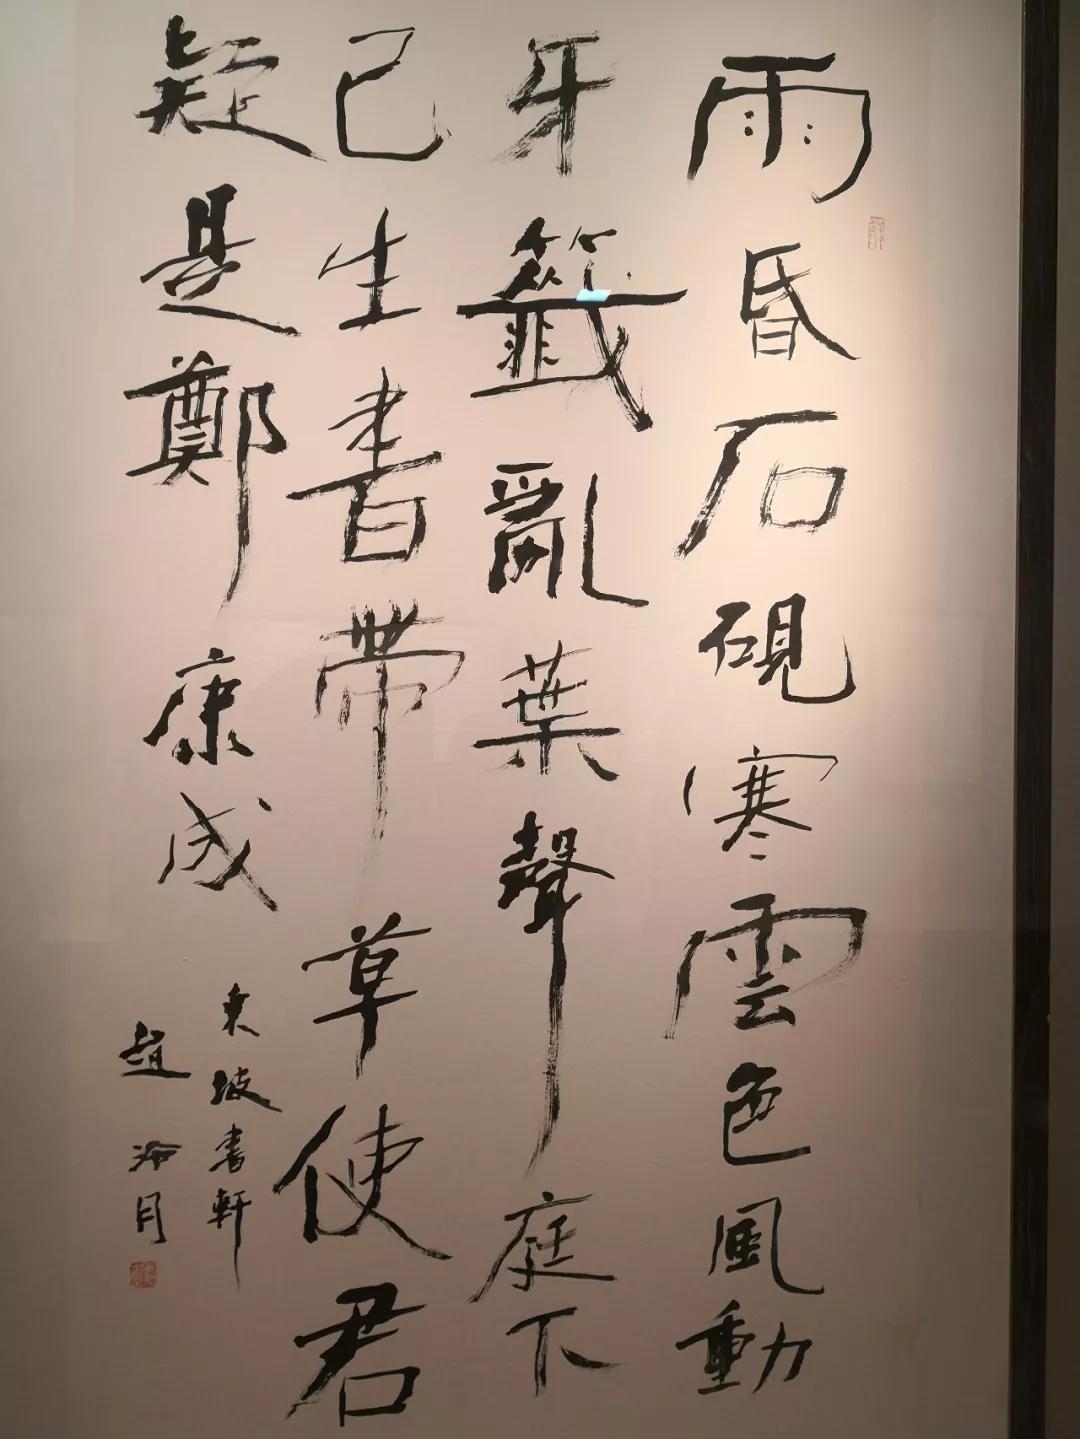 雨昏石硯寒雲色風動
牙籤亂葉聲庭下
已生書帶草使君
疑是鄭康成
東坡書軒
趙冷月